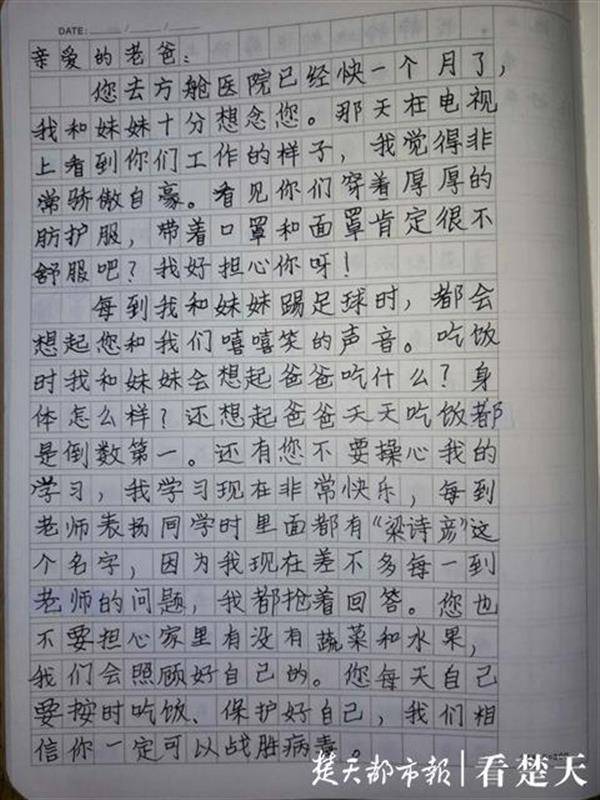 DATE: / /
亲爱的老爸：
您去方舱医院已经快一个月了，
我和妹妹十分想念您。那天在电视
上看到你们工作的样子，我觉得非
常骄傲自豪。看见你们穿着厚厚的
防护服，带着口罩和面罩肯定很不
舒服吧？我好担心你呀！
每到我和妹妹踢足球时，都会
想起您和我们嘻嘻笑的声音。吃饭
时我和妹妹会想起爸爸吃什么？身
体怎么样？还想起爸爸天天吃饭都
是倒数第一。还有您不要操心我的
学习，我学习现在非常快乐，每到
老师表扬同学时里面都有“梁诗彦”这
个名字，因为我现在差不多每一到
老师的问题，我都抢着回答。您也
不要担心家里有没有蔬菜和水果，
我们会照顾好自己的。您每天自己
要按时吃饭、保护好自己，我们相
信你一定可以战胜病毒。
楚天都市报|看楚天